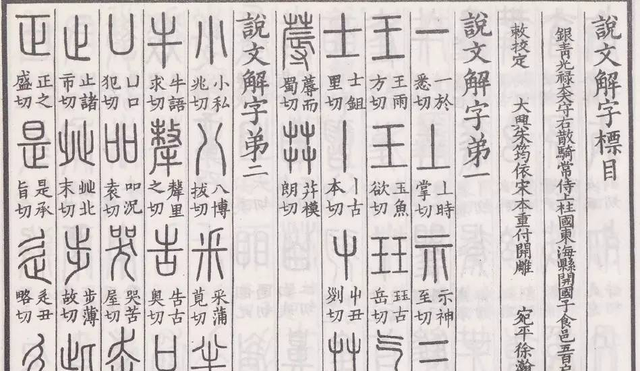 說文解字標目
銀青光祿大夫守右散騎常侍上柱國東海縣開國子食邑五百户
敕挍定 大興朱筠依宋本重付開雕 宛平徐瀚
說文解字弟一
一 一於悉切 丄 丄時掌切 示 示神至切 三
王 王雨方切 玉 玉魚欲切 玨 玨古岳切 气
士 士鉏里切 丨 丨古本切 屮 屮丑列切 艸
蓐 蓐而蜀切 茻 茻模朗切
說文解字弟二
小 小私兆切 八 八博拔切 釆 釆蒲莧切 半
牛 牛語求切 犛 犛里之切 告 告古奧切 口
凵 凵口犯切 吅 吅況袁切 哭 哭苦屋切 走
止 止諸市切 癶 癶北末切 步 步薄故切 此
正 正之盛切 是 是承旨切 辵 辵丑略切 彳